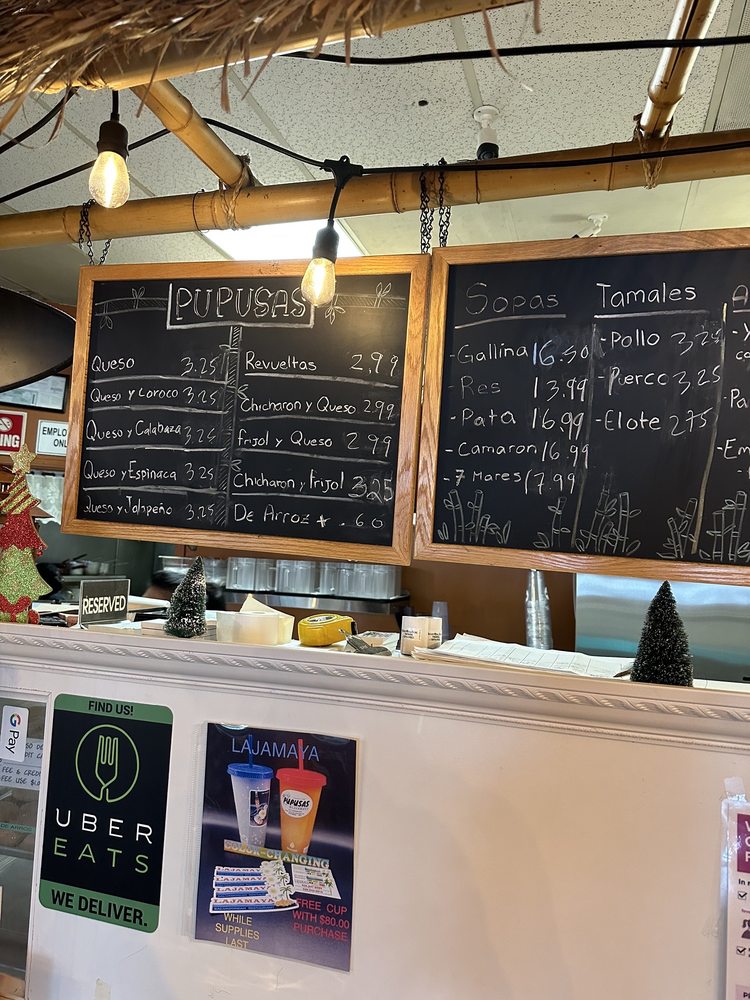 PUPUSAS
Queso 3.25
Queso y Loroco 3.25
Queso y Calabaza 3.25
Queso y Espinaca 3.25
Queso y Jalapeño 3.25
Revueltas 2,99
Chicharon y Queso 2.99
Frijol y Queso 2.99
Chicharon y Frijol 3.25
De Arroz + .60
Sopas
- Gallina 16.50
- Res 13.99
- Pata 16.99
- Camaron 16.99
- 7 Mares 17.99
Tamales
- Pollo 3.25
- Puerco 3.25
- Elote 2.75
A
Pa
Em
EMPLO
ONL
ING
RESERVED
G Pay
FIND US!
UBER
EATS
WE DELIVER.
LAJAMAYA
PUPUSAS
COLOR-CHANGING
LAJAMAYA
LAJAMAYA
LAJAMAYA
LAJAMAYA
WHILE
SUPPLIES
LAST
FREE CUP
WITH $80.00
PURCHASE